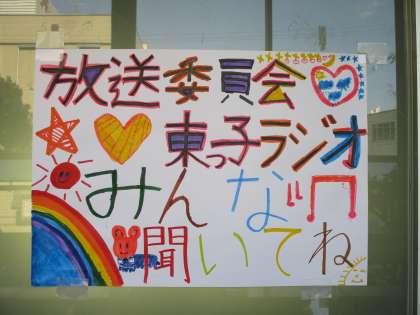 放送委員会
東っ子ラジオ
みんな
聞いてね